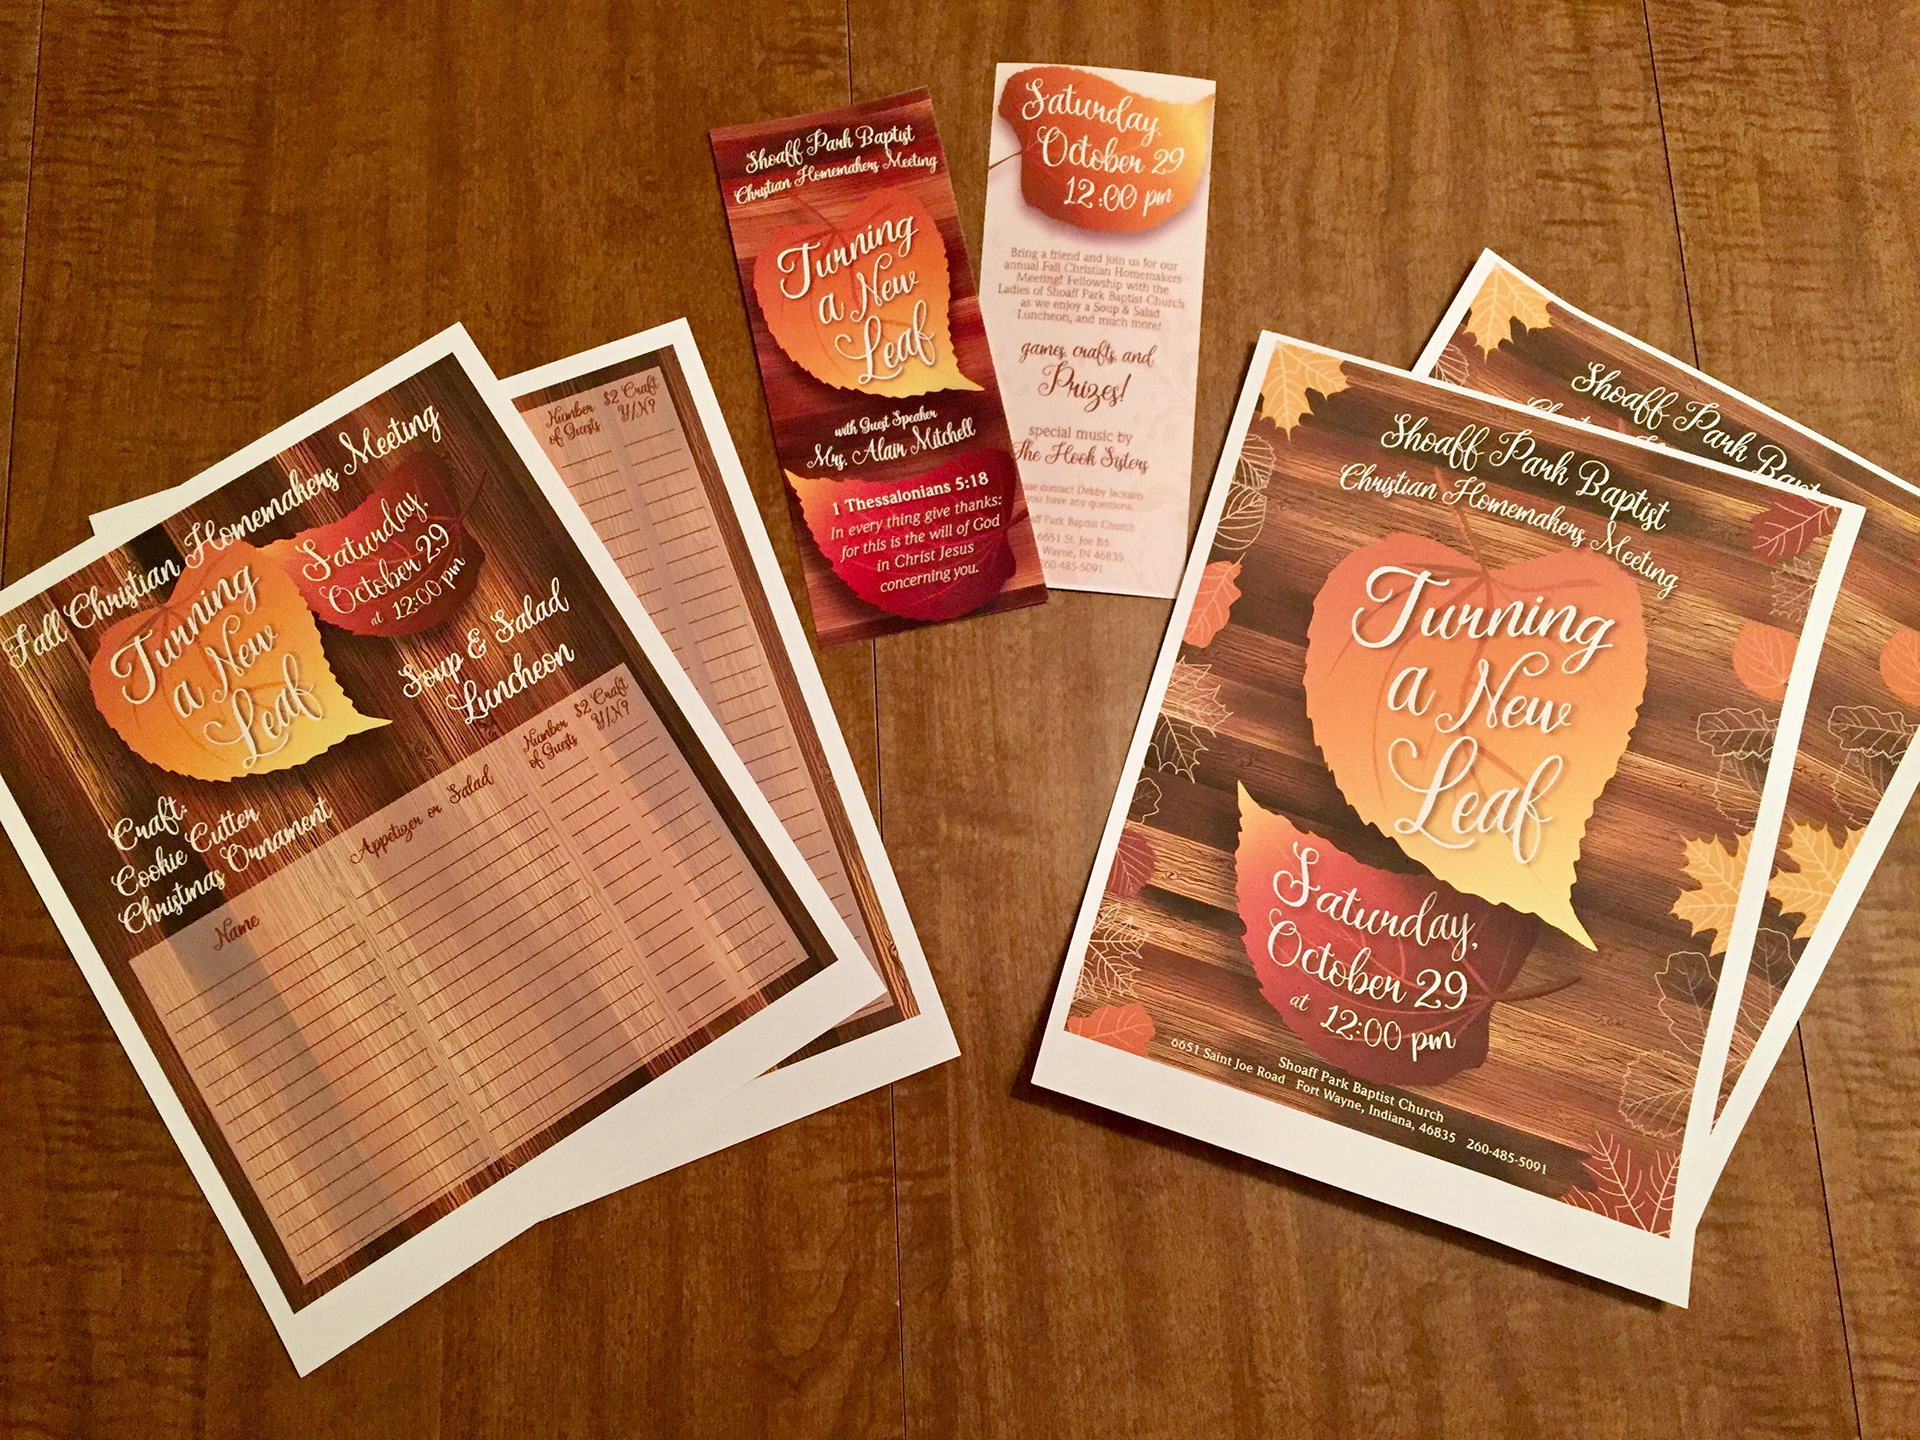 Shoaff Park Baptist
Christian Homemakers Meeting
Turning
a New
Leaf
with Guest Speaker
Mrs. Alain Mitchell
1 Thessalonians 5:18
In every thing give thanks:
for this is the will of God
in Christ Jesus
concerning you.
Saturday,
October 29
12:00 pm
Bring a friend and join us for our
annual Fall Christian Homemakers
Meeting! Fellowship with the
Ladies of Shoaff Park Baptist Church
as we enjoy a Soup & Salad
Luncheon, and much more!
games, crafts, and
Prizes!
special music by
The Hook Sisters
contact Debby Jackson
you have any questions.
Park Baptist Church
6651 St. Joe Rd.
Wayne, IN 46835
260-485-5091
Fall Christian Homemakers Meeting
Turning
a New
Leaf
Saturday,
October 29
at 12:00 pm
Soup & Salad
Luncheon
Craft:
Cookie Cutter
Christmas Ornament
Name
Appetizer or Salad
Number
of Guests
$2 Craft
Y/N?
Number
of Guests
$2 Craft
Y/N?
Shoaff Park Baptist
Christian Homemakers Meeting
Turning
a New
Leaf
Saturday,
October 29
at 12:00 pm
Shoaff Park Baptist Church
6651 Saint Joe Road Fort Wayne, Indiana, 46835 260-485-5091
Shoaff Park Bapt